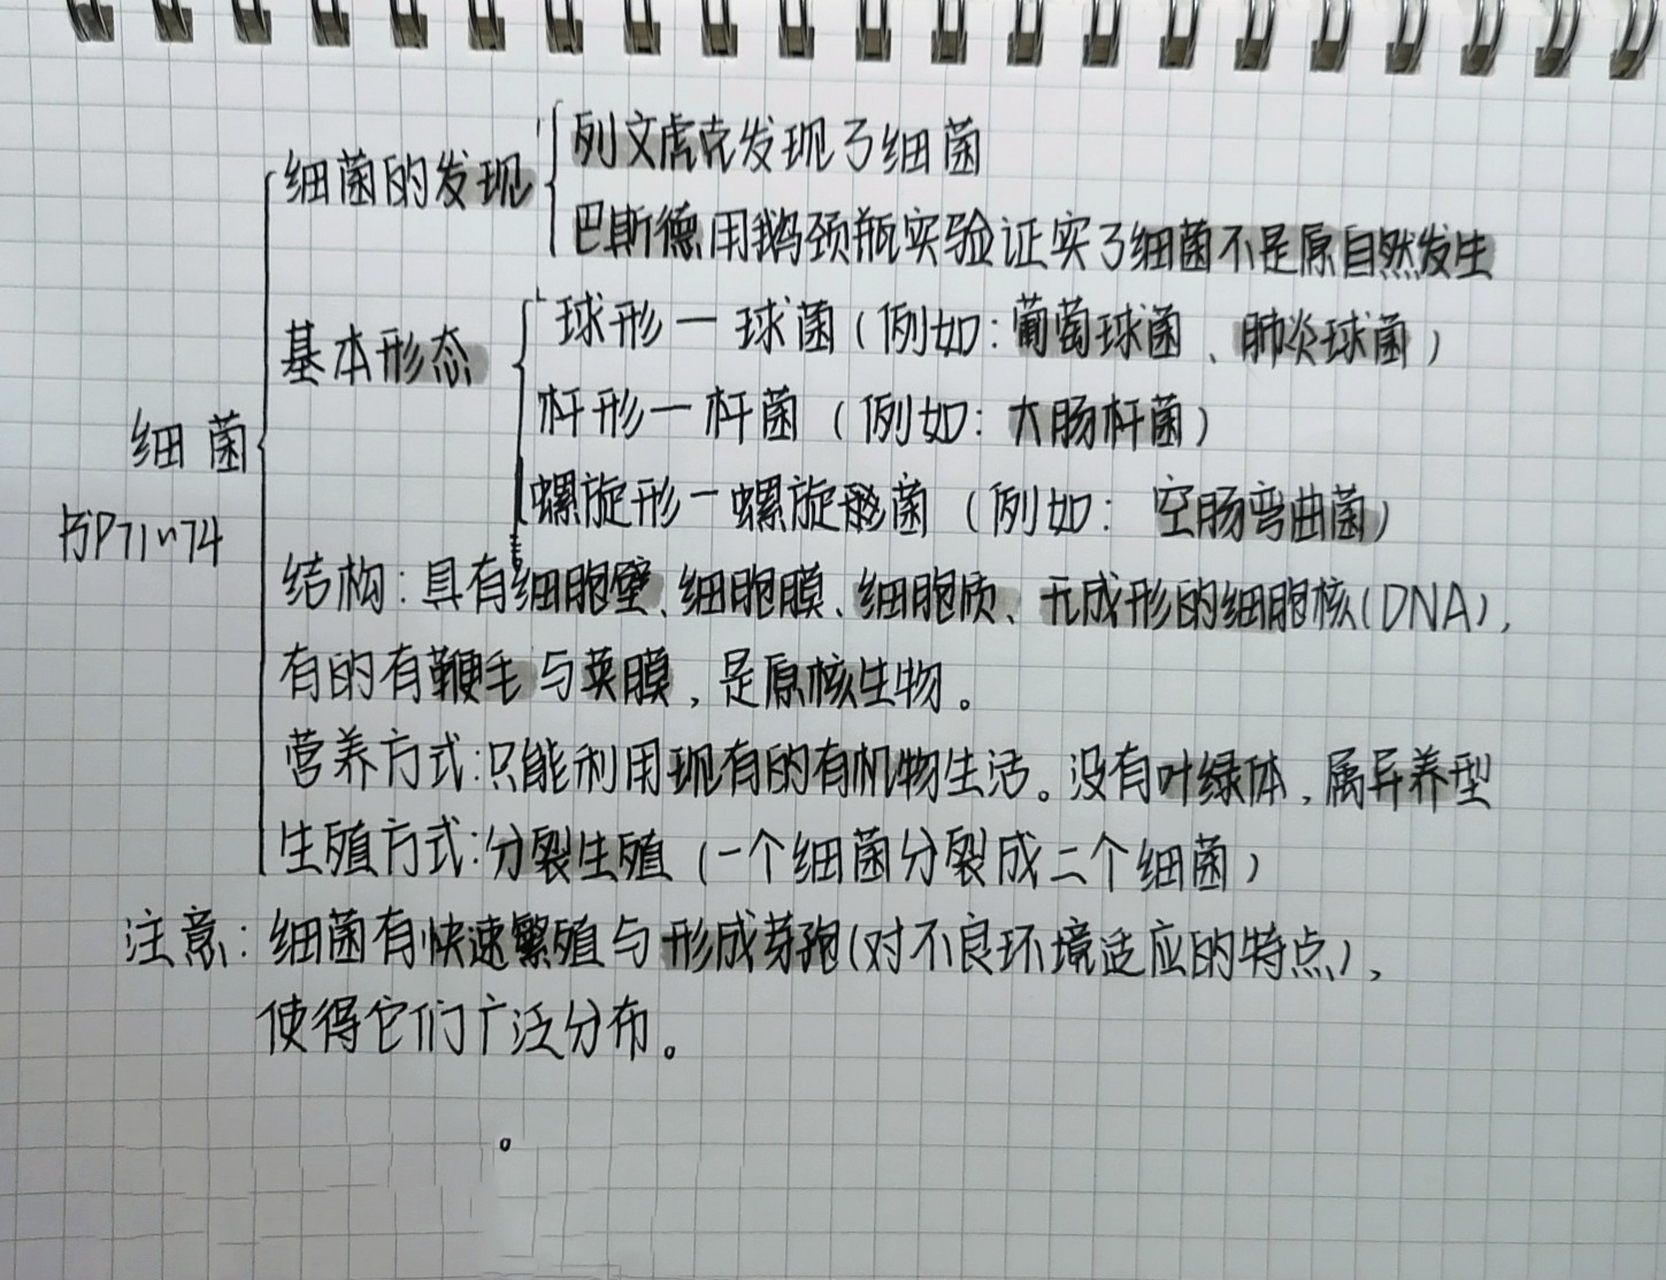 细菌的发现
列文虎克发现了细菌
巴斯德用鹅颈瓶实验证实了细菌不是原自然发生
基本形态
球形一球菌(例如:葡萄球菌、肺炎球菌)
杆形一杆菌(例如:大肠杆菌)
细菌
书P71~74
螺旋形一螺旋菌(例如:空肠弯曲菌)
结构:具有细胞壁、细胞膜、细胞质、无成形的细胞核(DNA),
有的有鞭毛与荚膜,是原核生物。
营养方式:只能利用现有的有机物生活。没有叶绿体,属异养型
生殖方式:分裂生殖(一个细菌分裂成二个细菌)
注意:细菌有快速繁殖与形成芽孢(对不良环境适应的特点),
使得它们广泛分布。